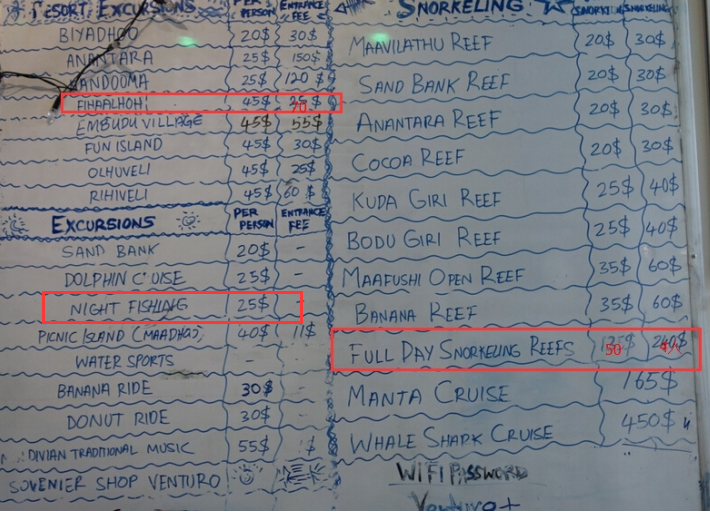 RESORT EXCURSIONS PER PERSON ENTRANCE FEE
BIYADHOO 20$ 30$
ANANTARA 25$ 150$
KANDOOMA 25$ 120$
FIHAALHOHI 45$
EMBUDU VILLAGE 45$ 55$
FUN ISLAND 45$ 30$
OLHUVELI 45$ 25$
RIHIVELI 45$ 60$
EXCURSIONS PER PERSON ENTRANCE FEE
SAND BANK 20$ -
DOLPHIN C UISE 25$ -
NIGHT FISHING 25$ -
PICNIC ISLAND (MAADHOO) 40$ 11$
WATER SPORTS
BANANA RIDE 30$
DONUT RIDE 30$
DIVIAN TRADITIONAL MUSIC 55$ $
SOVENIER SHOP VENTURO
SNORKELING
MAAVILATHU REEF 20$ 30$
SAND BANK REEF 20$ 30$
ANANTARA REEF 20$ 30$
COCOA REEF 20$ 30$
KUDA GIRI REEF 25$ 40$
BODU GIRI REEF 25$ 40$
MAAFUSHI OPEN REEF 35$ 60$
BANANA REEF 35$ 60$
FULL DAY SNORKELING REEFS 50
MANTA CRUISE 165$
WHALE SHARK CRUISE 450$
WIFI PASSWORD
Venturo+